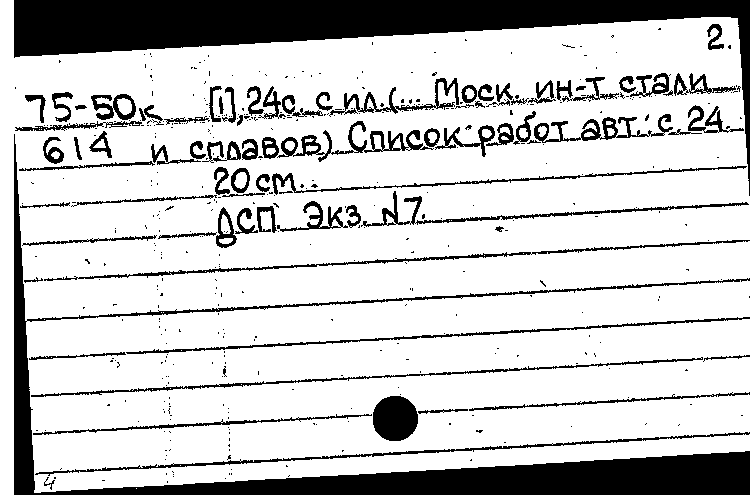 2.
75-50к [1], 24с. с ил. (... Моск. ин-т стали
614 и сплавов) Список работ авт.: с. 24
20 см.
ДСП. Экз. №7.
4